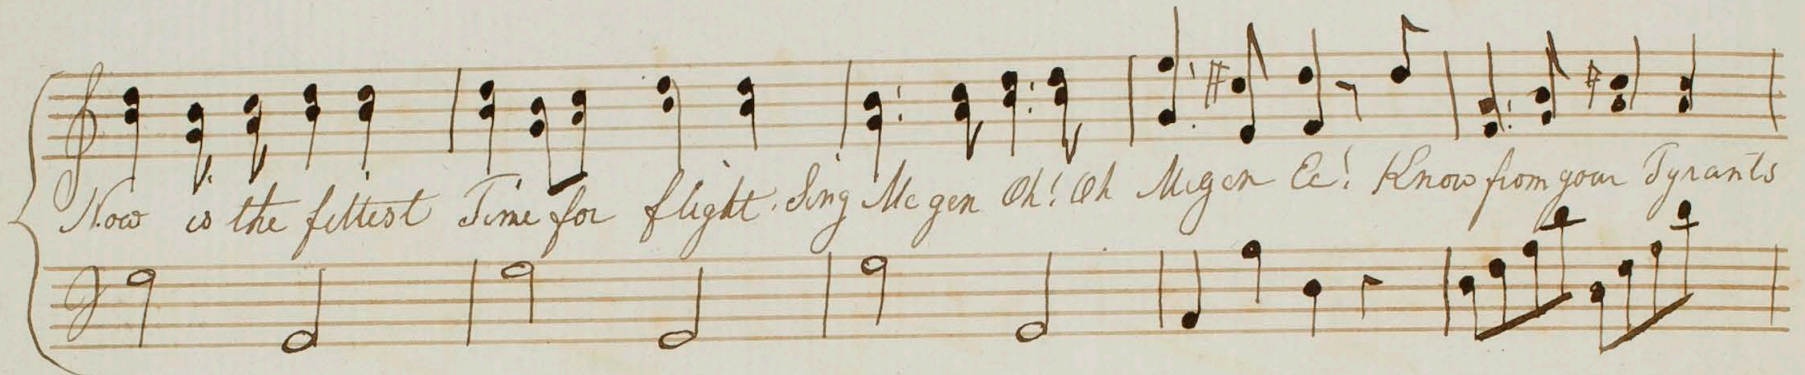 Now is the fittest Time for flight. Sing Me gen Oh! Oh Me gen Ee! Know from your Tyrants